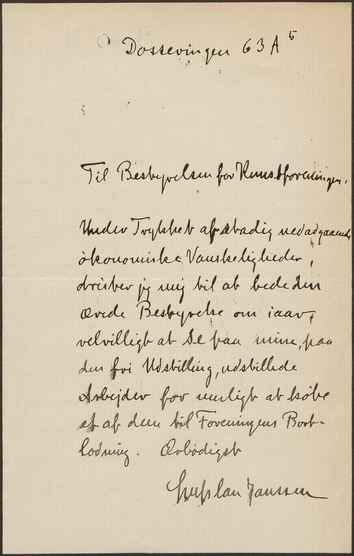 Dossevingen 63 A 5
Til Bestyrelsen for Kunstforeningen.
Under Trykket af stadig nedadgaaende
økonomiske Vanskeligheder,
drister jeg mig til at bede den
ærede Bestyrelse om iaar,
velvilligt at se paa mine, paa
den fri Udstilling, udstillede
Arbejder for muligt at købe
et af dem til Foreningens Bort-
lodning. Ærbødigst
Janssen